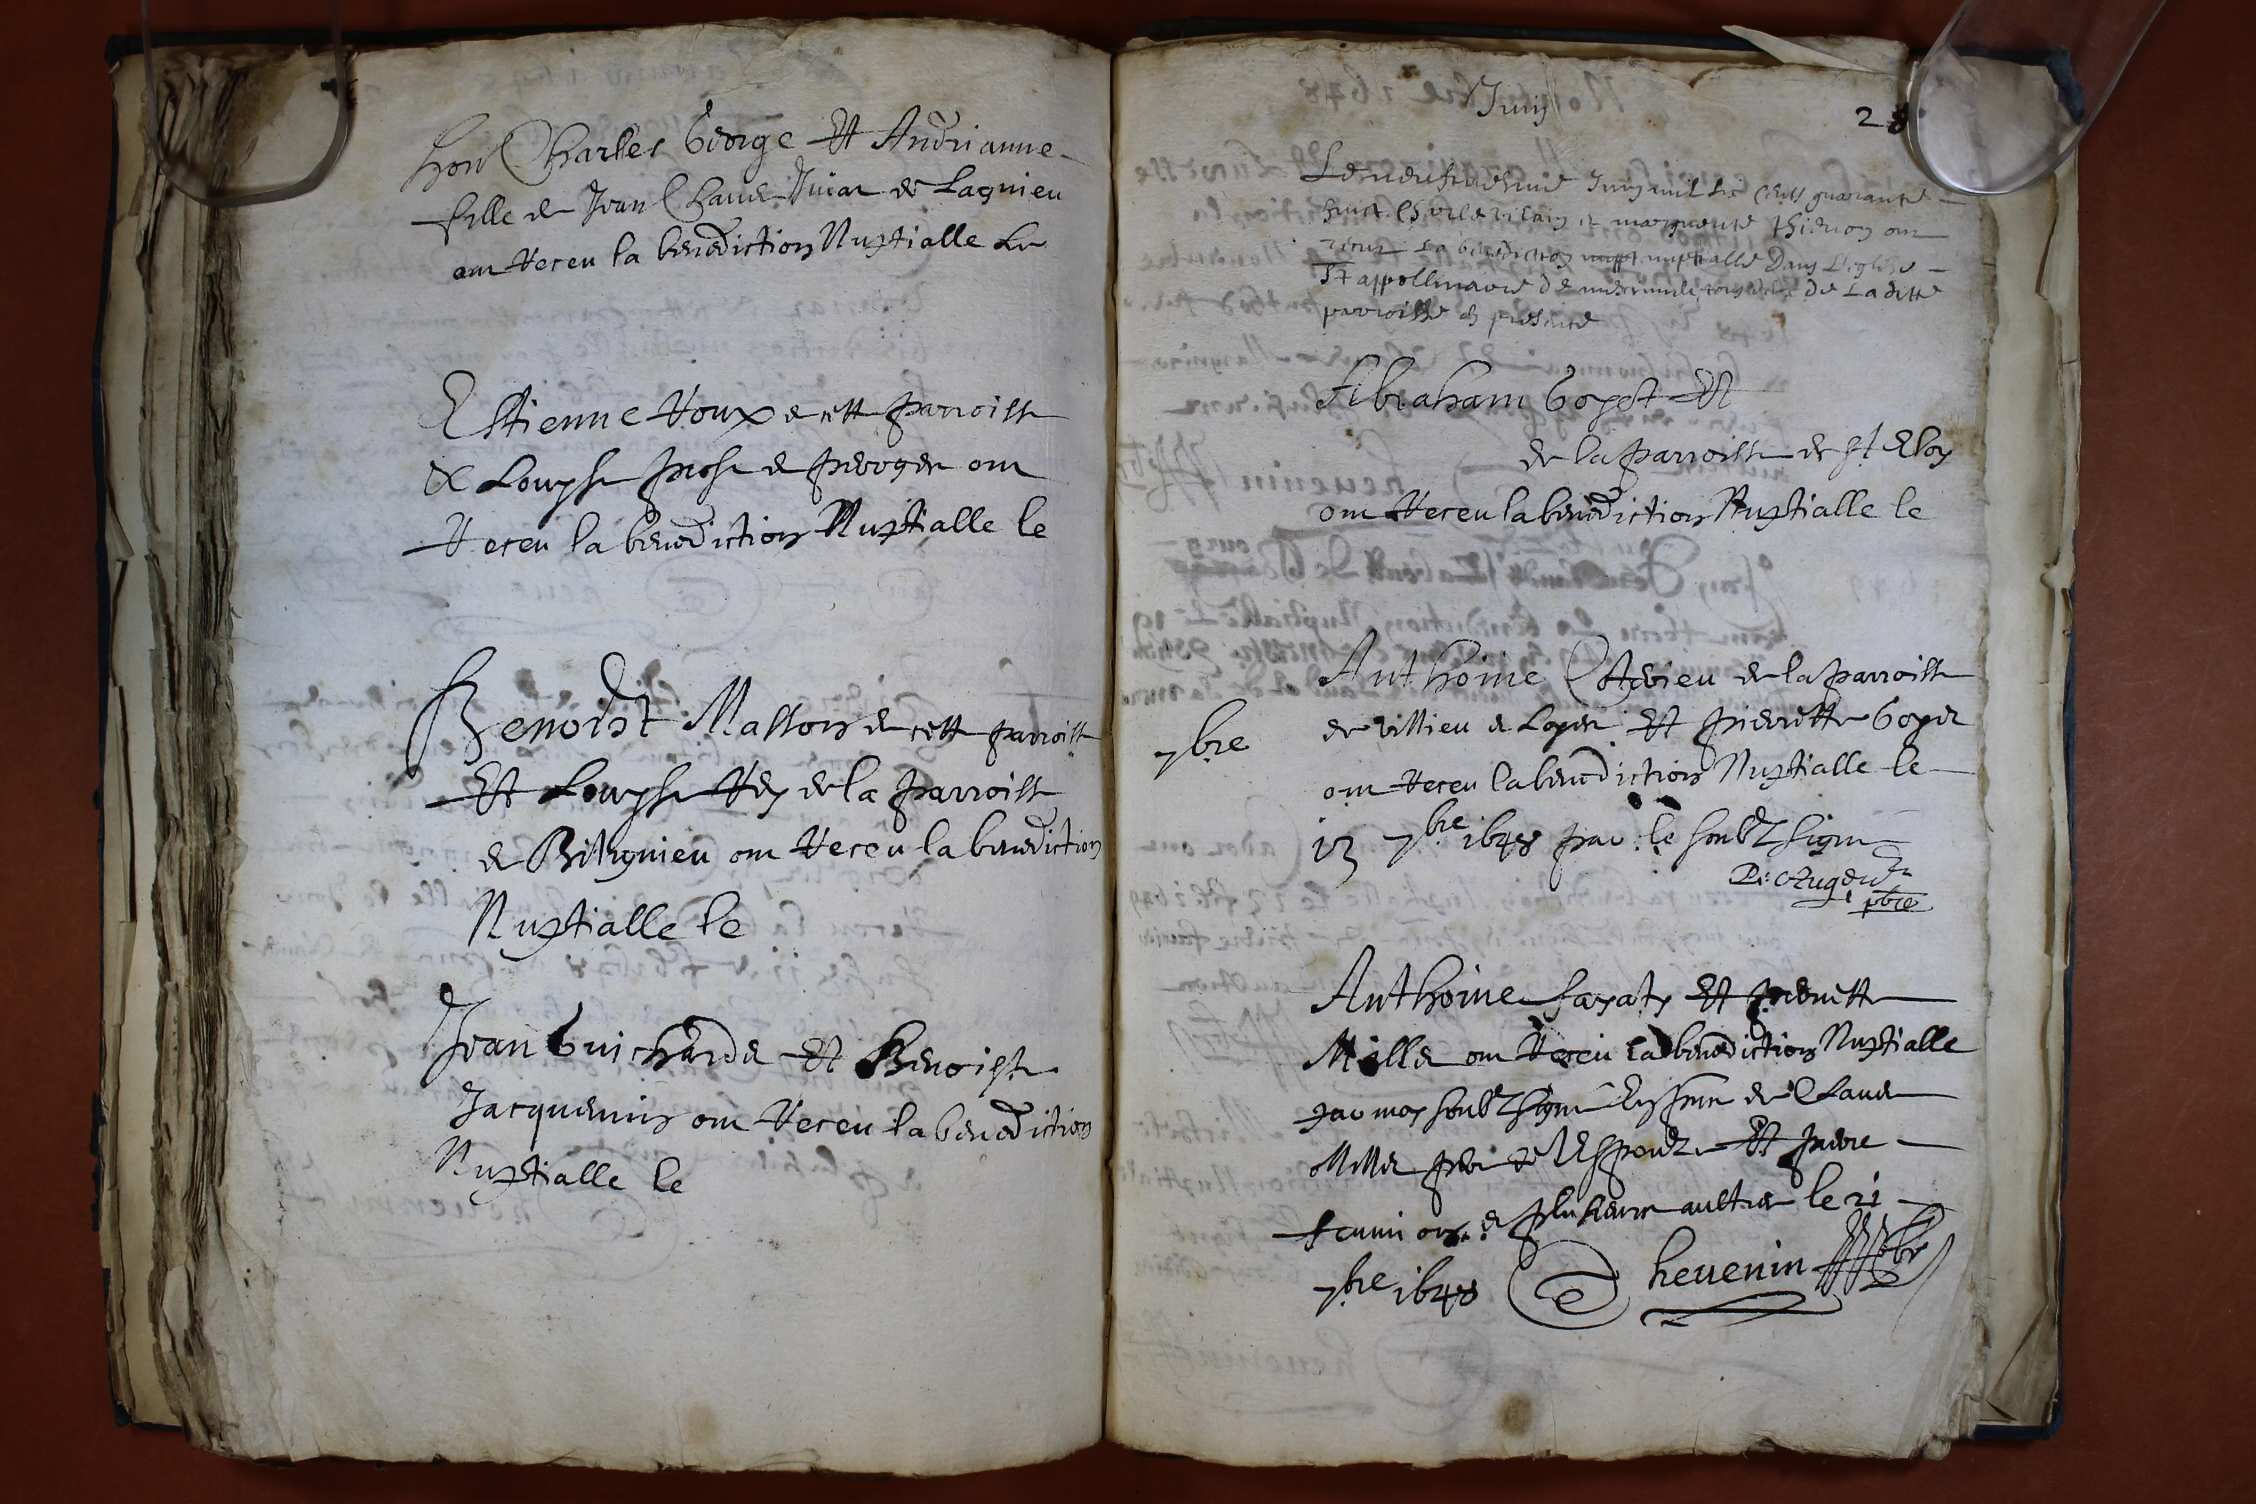 hon Charles George Et Andrianne
fille de Jean Claude Juiar de Lagnieu
ont Receu la benediction Nuptialle Le
Estienne Roux de cette parroisse
& Louyse de peroges ont
Receu la benediction Nuptialle le
Benoist Masson de cette parroisse
Et Louyse Rey de la parroisse
de Blignieu ont Receu la benediction
Nuptialle le
Jean Guicharde Et Benoiste
Jacquemin ont Receu la benediction
Nuptialle le
Juin
28
Le neufviesme Juin mil six cents quarante
huict Charle vilain et marguerite thieuon ont
receu La benediction nuptialle Dans L'eglise
St appollinaire de de La ditte
parroisse
Abraham Goyet Et
de la parroisse de st Eloy
ont Receu la benediction Nuptialle le
7bre
Anthoine de la parroisse
de villieu de Loyes Et pierrette Goyet
ont Receu la benediction Nuptialle le
13 7bre 1648 par le soubz signe
pbre
Anthoine Sayaty Et pierrette
Millet ont Receu la benediction Nuptialle
par moy soubz signe En pnce de Claude
Millet pere de l'Espouze Et pierre
de plusieurs aultres le 21
7bre 1648 Chevenin pbr